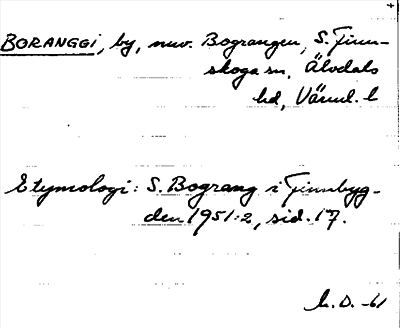 BORANGGI, by, nuv. Bograngen, S. Finn-
skoga sn, Älvdals
hd, Värml. l
Etymologi: S. Bograng i Finnbyg-
den 1951:2, sid. 17.
h. D. -61